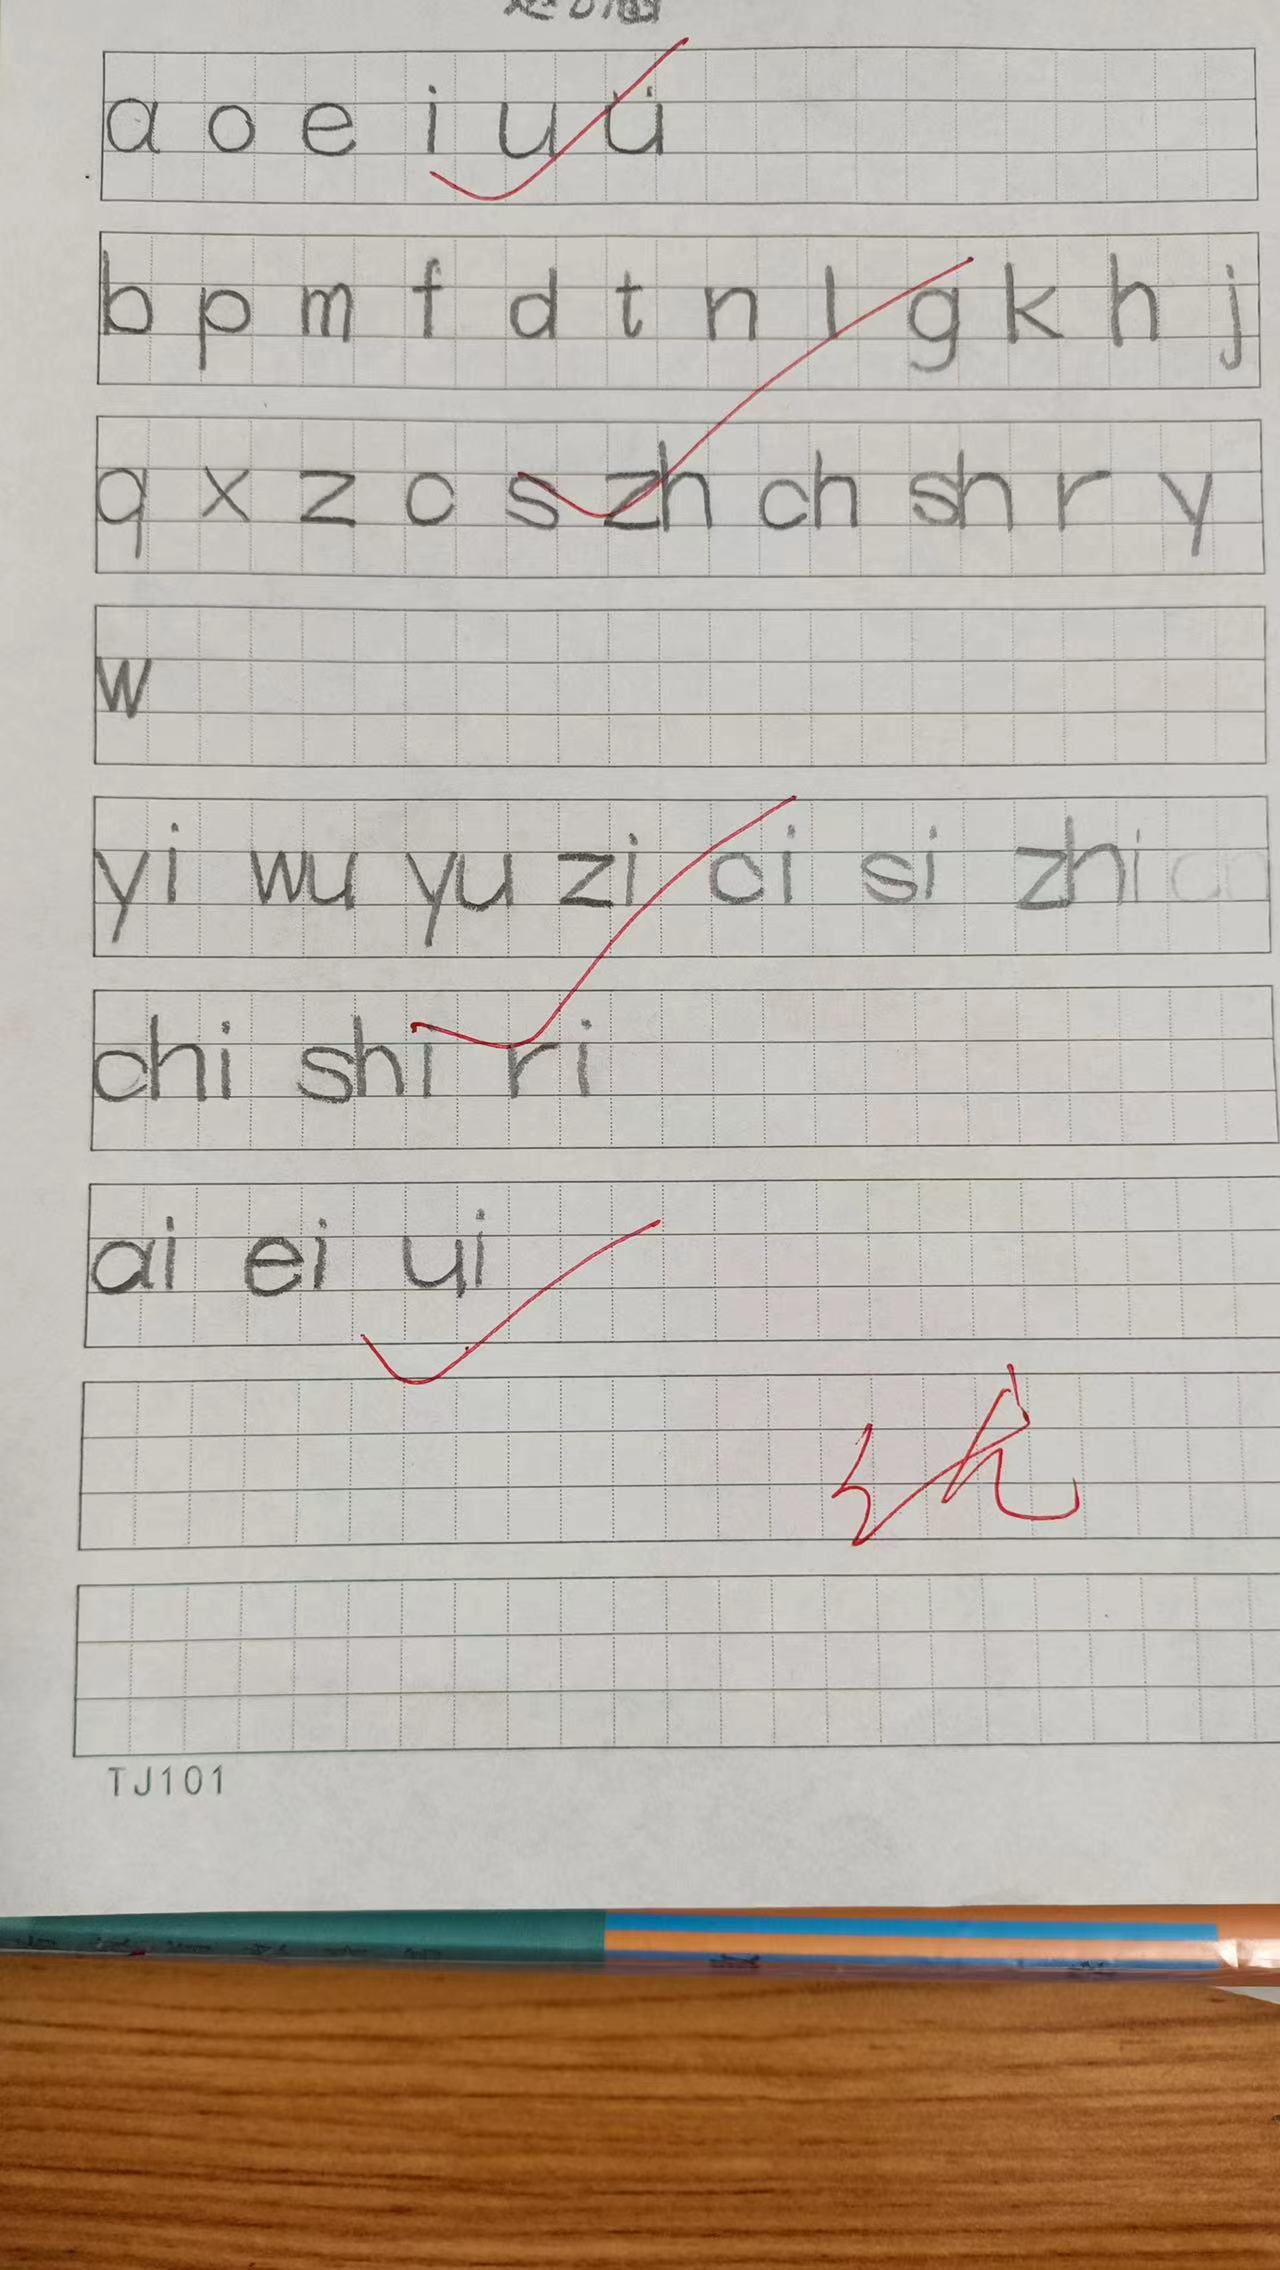 a o e i u ü
b p m f d t n l g k h j
q x z c s zh ch sh r y
w
yi wu yu zi ci si zhi
chi shi ri
ai ei ui
优
TJ101